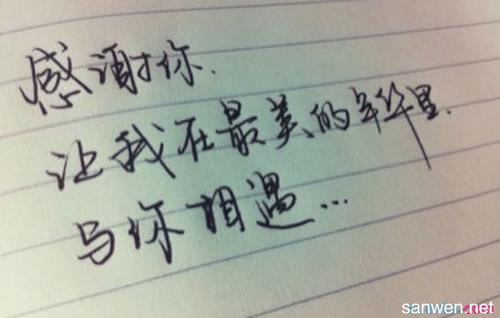 感谢你.
让我在最美的年华里.
与你相遇...
sanwen.net